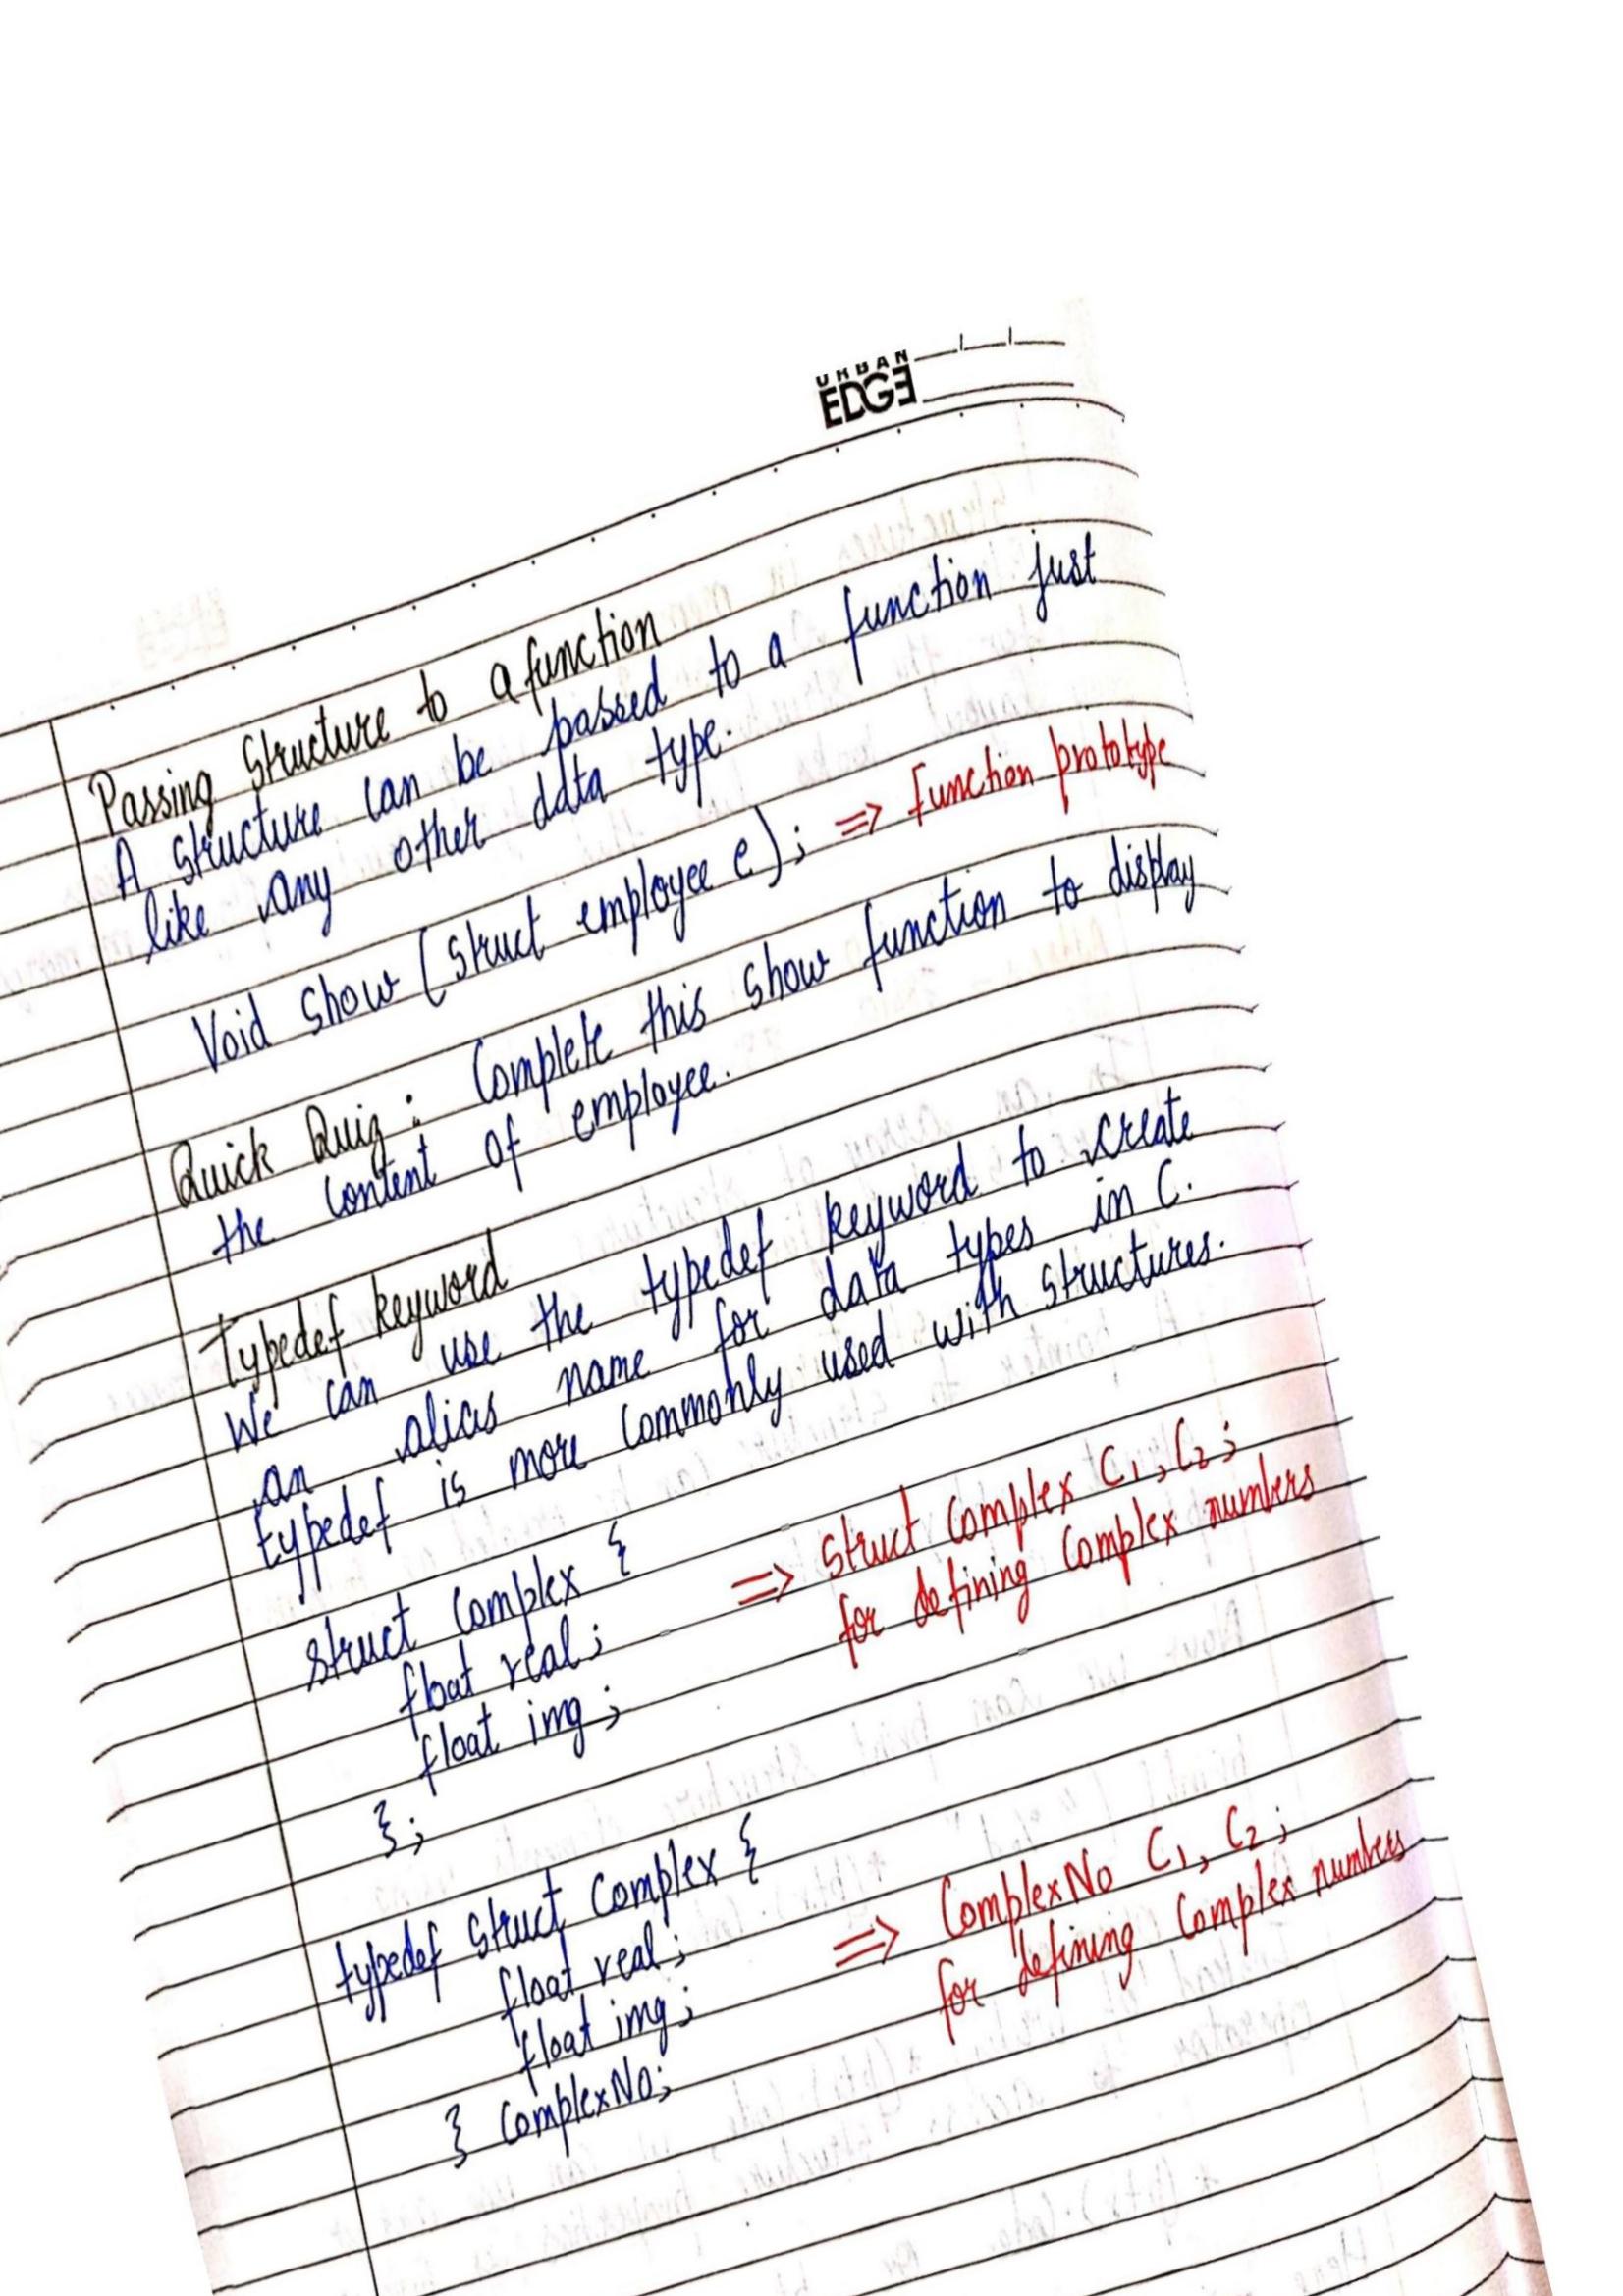 URBAN
EDGE
Passing Structure to a function
A structure can be passed to a function just
like any other data type.
Void Show (Struct employee e); ⇒ function prototype
Quick Quiz : Complete this show function to display
the content of employee.
Typedef keyword
We can use the typedef keyword to create
an alias name for data types in C.
typedef is more commonly used with structures.
struct Complex { ⇒ Struct Complex C1, C2;
float real; for defining Complex numbers
float img;
};
typedef Struct Complex { ⇒ ComplexNo C1, C2;
float real; for defining Complex numbers
float img;
} ComplexNo;